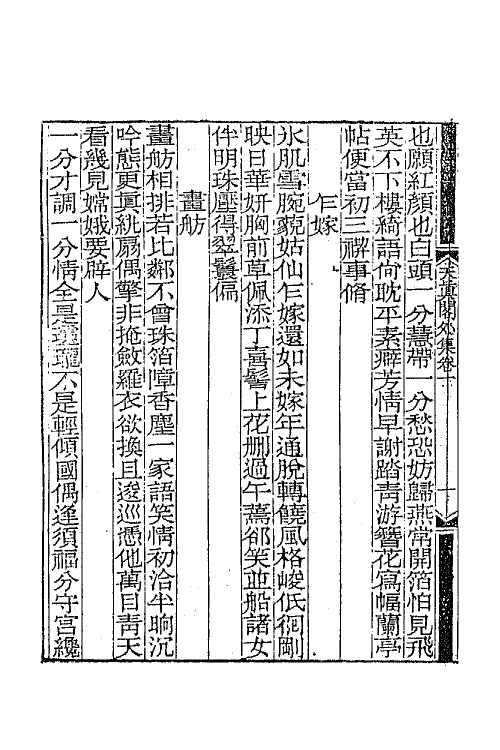 天眞閣外集卷一
十
也願紅顏也白頭一分慧帶一分愁恐妨歸燕常開箔怕見飛
英不下樓綺語尙耽平素癖芳情早謝踏靑游簪花寫幅蘭亭
帖便當初三禊事脩
乍嫁
氷肌雪腕藐姑仙乍嫁還如未嫁年通脫轉饒風格峻低徊剛
映日華妍胸前草佩添丁喜髻上花删過午蔫郤笑並船諸女
伴明珠壓得翠鬟偏
畫舫
畫舫相排若比鄰不曾珠箔障香塵一家語笑情初洽半晌沉
吟態更眞紈扇偶擎非掩斂羅衣欲換且逡巡憑他萬目靑天
看幾見嫦娥要辟人
一分才調一分情全是瓏不是輕傾國偶逢須福分守宮纔